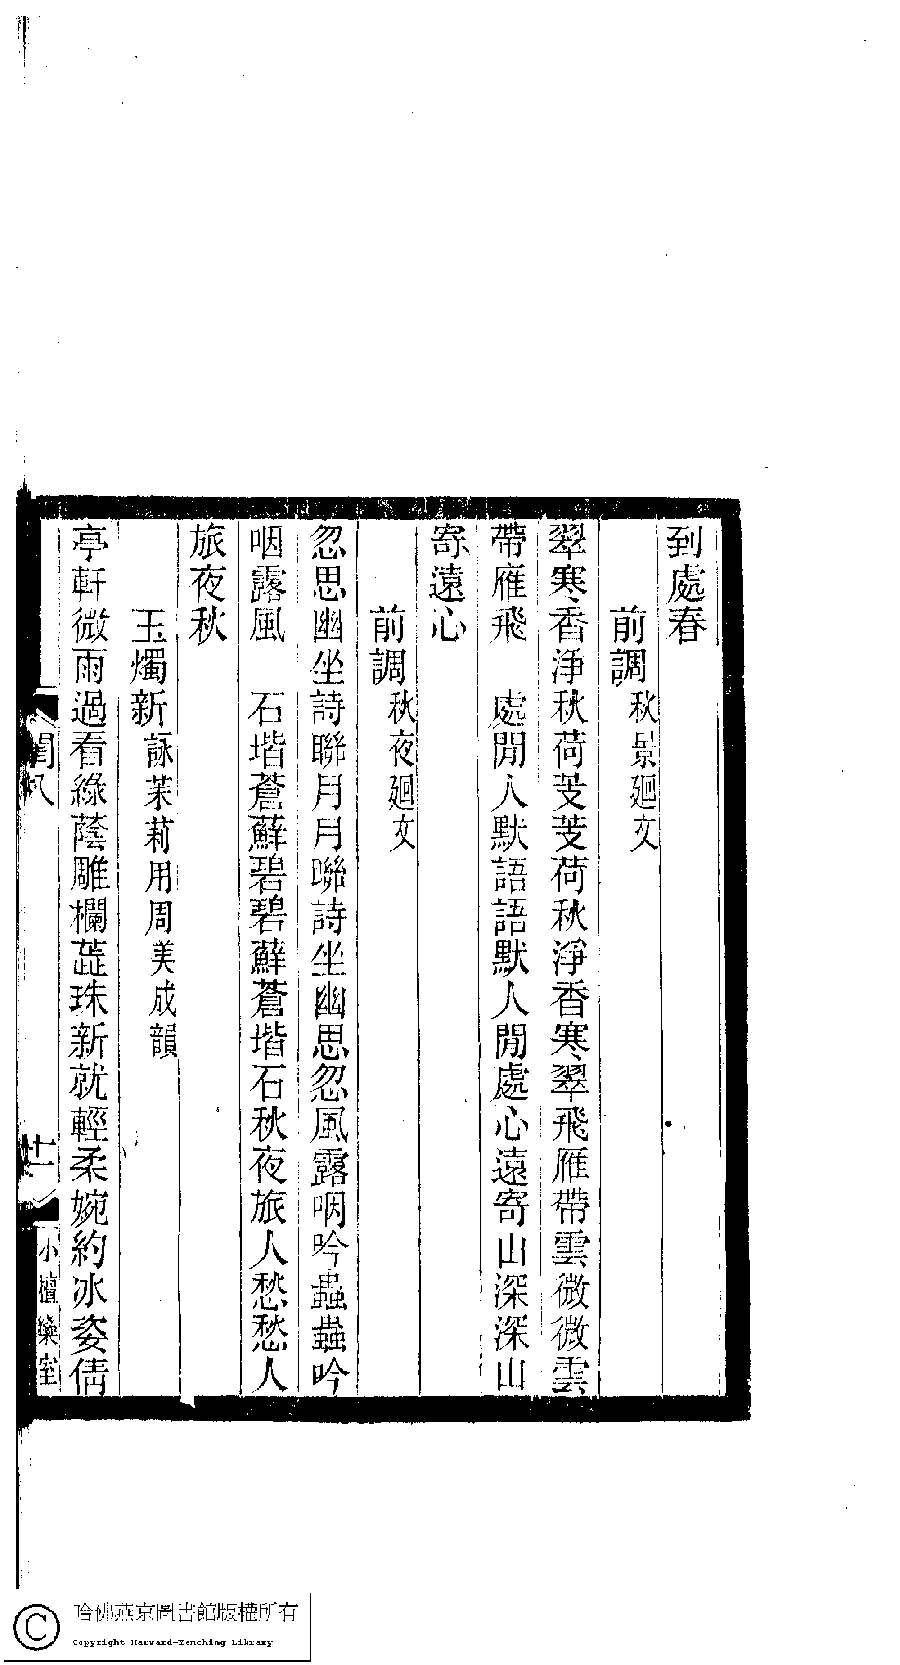 到處春
前調秋景廻文
翠寒香淨秋荷芰芰荷秋淨香寒翠飛雁帶雲微微雲
帶雁飛　處閒人默語語默人閒處心遠寄山深深山
寄遠心
前調秋夜廻文
忽思幽坐詩聯月月聯詩坐幽思忽風露咽吟蟲蟲吟
咽露風　石堦蒼蘚碧碧蘚蒼堦石秋夜旅人愁愁人
旅夜秋
玉燭新詠茉莉用周美成韻
亭軒微雨過看綠蔭雕欄蕋珠新就輕柔婉約冰姿倩
閏八
十一
小檀欒室
哈佛燕京圖書館版權所有
Copyright Harvard-Yenching Library